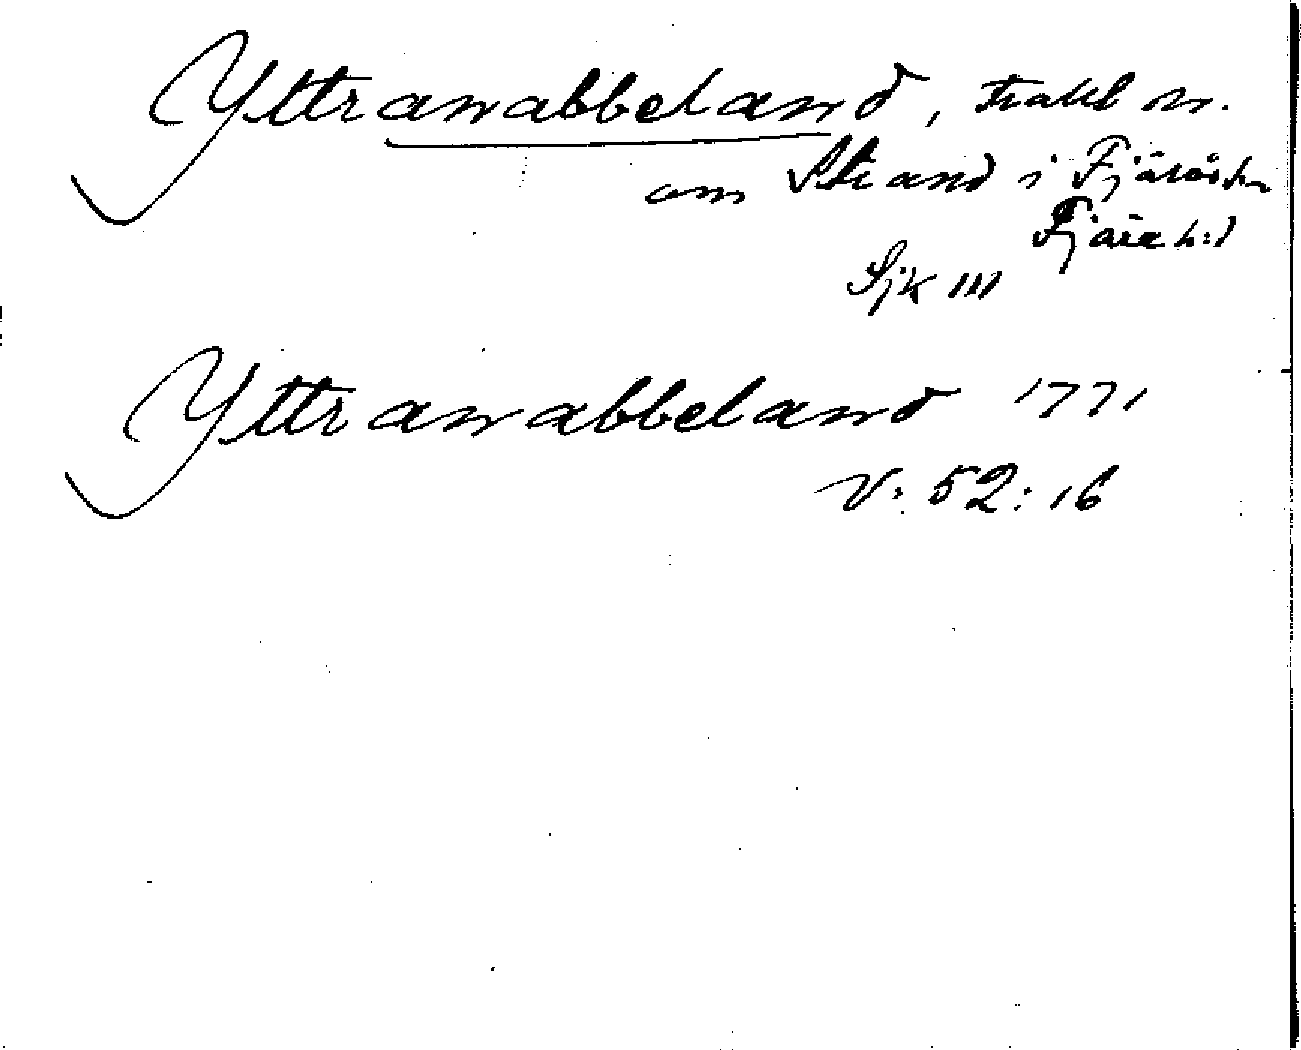 Yttranabbeland, trakt n.
om Strand i Fjärås sn
Fjäre h:d
Sjk III
Yttranabbeland 1771
V: 52: 16